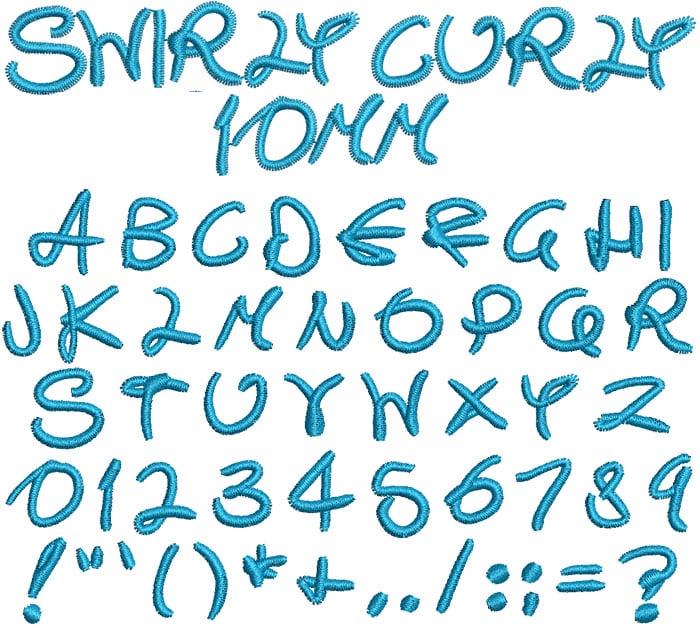 SWIRLY CURLY
10MM
ABCDEFGHI
JKLMNOPQR
STUVWXYZ
0123456789
!"'()*+,./:;=?